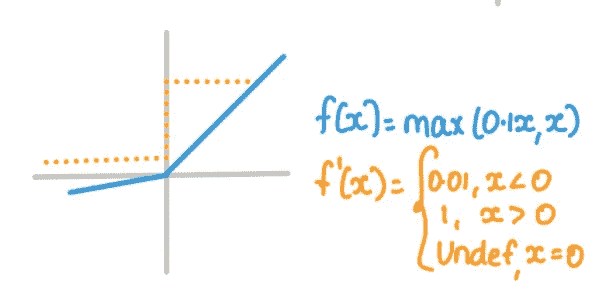 f(x)= max(0.1x,x)
f'(x)= {0.01, x<0
1, x>0
Undef, x=0